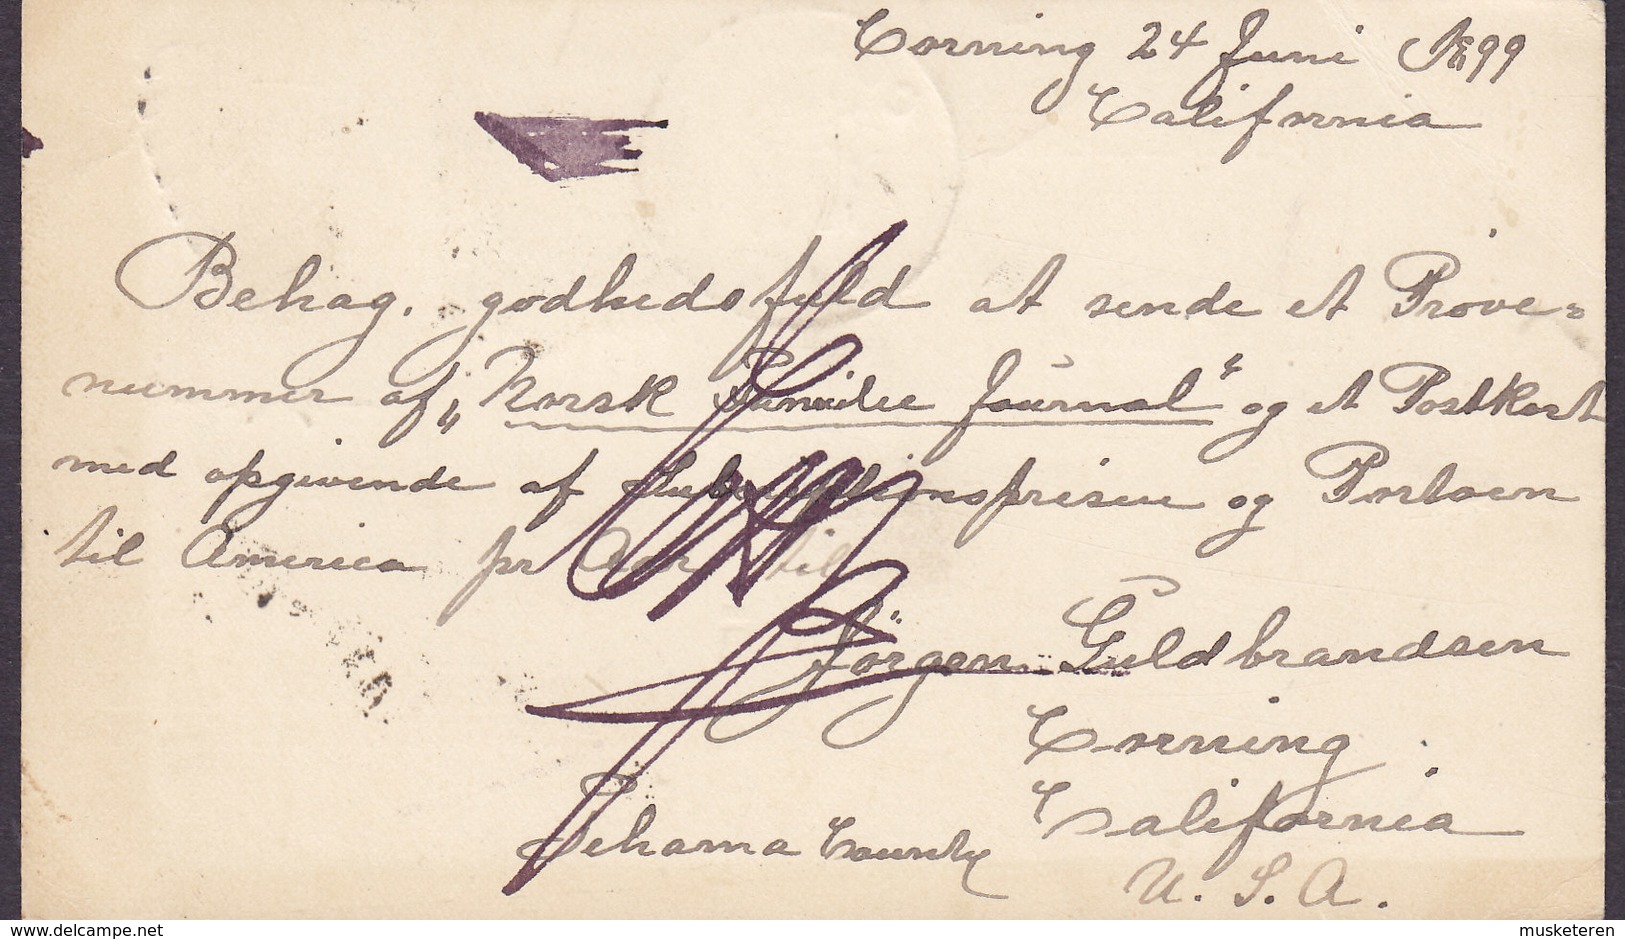 Corning 24 Juni 1899
California
Behag. godhedsfuld at sende et Prøve=
nummer af „Norsk Familie Journal" og et Postkort
med opgivende af Subscriptionsprisen og Portoen
til America pr Aar til
Jörgen Guldbrandsen
Corning
California
Tehama County
U. S. A.
www.delcampe.net
musketeren